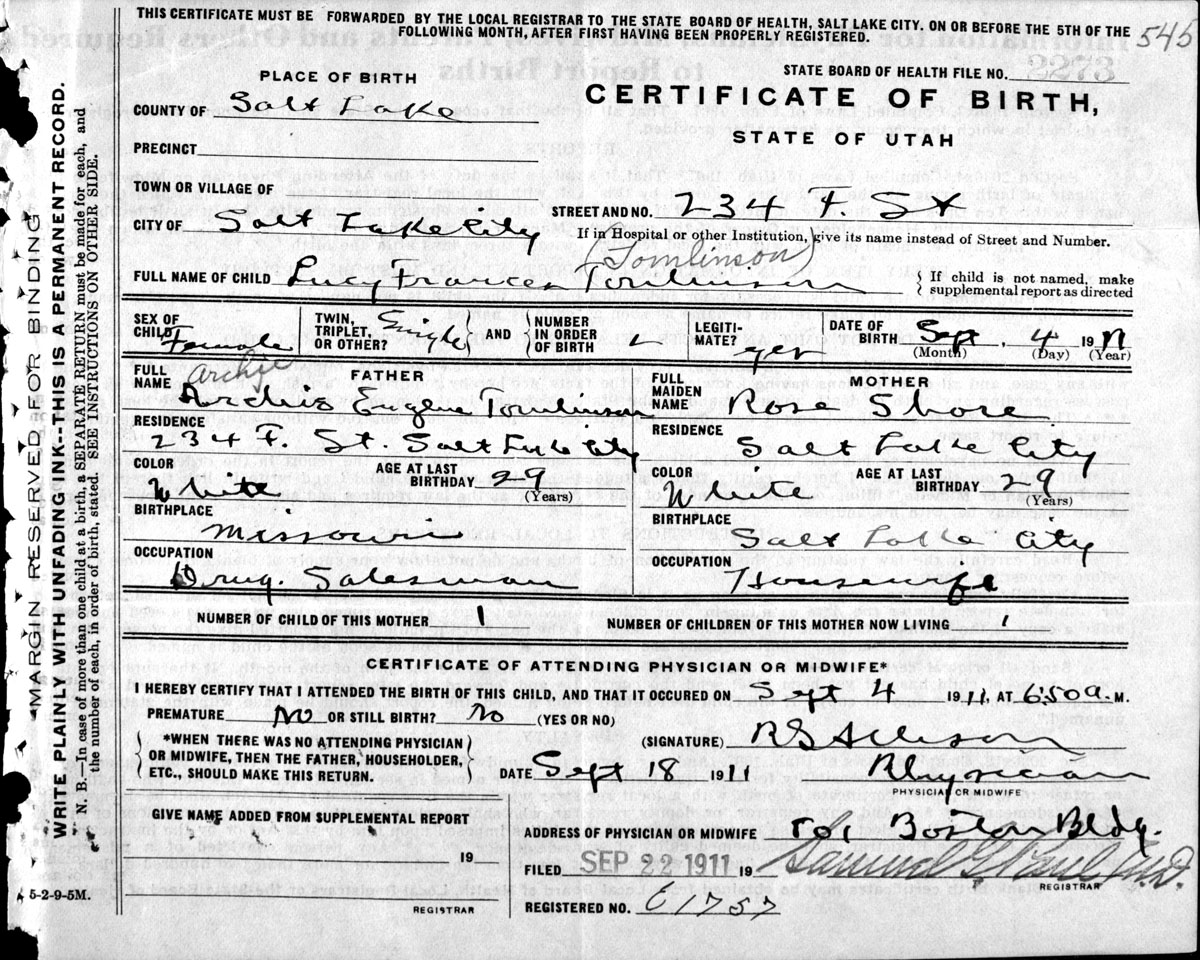 THIS CERTIFICATE MUST BE FORWARDED BY THE LOCAL REGISTRAR TO THE STATE BOARD OF HEALTH, SALT LAKE CITY. ON OR BEFORE THE 5TH OF THE
FOLLOWING MONTH, AFTER FIRST HAVING BEEN PROPERLY REGISTERED.
546
PLACE OF BIRTH
STATE BOARD OF HEALTH FILE NO.
COUNTY OF Salt Lake
CERTIFICATE OF BIRTH,
STATE OF UTAH
PRECINCT
TOWN OR VILLAGE OF
STREET AND NO. 234 F. St
CITY OF Salt Lake City
If in Hospital or other Institution, give its name instead of Street and Number.
(Tomlinson)
FULL NAME OF CHILD Lucy Frances Tomlinson
If child is not named, make
supplemental report as directed
SEX OF CHILD Female
TWIN, TRIPLET, OR OTHER? Single
AND NUMBER IN ORDER OF BIRTH
LEGITIMATE? yes
DATE OF BIRTH Sept, 4 1911
(Month) (Day) (Year)
FATHER
MOTHER
Archie
FULL NAME Archie Eugene Tomlinson
FULL MAIDEN NAME Rose Shore
RESIDENCE 234 F. St. Salt Lake City
RESIDENCE Salt Lake City
COLOR White AGE AT LAST BIRTHDAY 29 (Years)
COLOR White AGE AT LAST BIRTHDAY 29 (Years)
BIRTHPLACE Missouri
BIRTHPLACE Salt Lake City
OCCUPATION Drug. Salesman
OCCUPATION Housewife
NUMBER OF CHILD OF THIS MOTHER 1
NUMBER OF CHILDREN OF THIS MOTHER NOW LIVING 1
CERTIFICATE OF ATTENDING PHYSICIAN OR MIDWIFE*
I HEREBY CERTIFY THAT I ATTENDED THE BIRTH OF THIS CHILD, AND THAT IT OCCURED ON Sept 4 1911, AT 650 a. M.
PREMATURE No OR STILL BIRTH? No (YES OR NO)
*WHEN THERE WAS NO ATTENDING PHYSICIAN
OR MIDWIFE, THEN THE FATHER, HOUSEHOLDER,
ETC., SHOULD MAKE THIS RETURN.
(SIGNATURE)
DATE Sept 18 1911
Physician
PHYSICIAN OR MIDWIFE
GIVE NAME ADDED FROM SUPPLEMENTAL REPORT
19
REGISTRAR
ADDRESS OF PHYSICIAN OR MIDWIFE Boston Bldg.
FILED SEP 22 1911 19
Samuel G. Paul
REGISTRAR
REGISTERED NO. C 1757
5-2-9-5M.
MARGIN RESERVED FOR BINDING
WRITE PLAINLY WITH UNFADING INK--THIS IS A PERMANENT RECORD.
N. B.—In case of more than one child at a birth, a SEPARATE RETURN must be made for each, and
the number of each, in order of birth, stated. SEE INSTRUCTIONS ON OTHER SIDE.